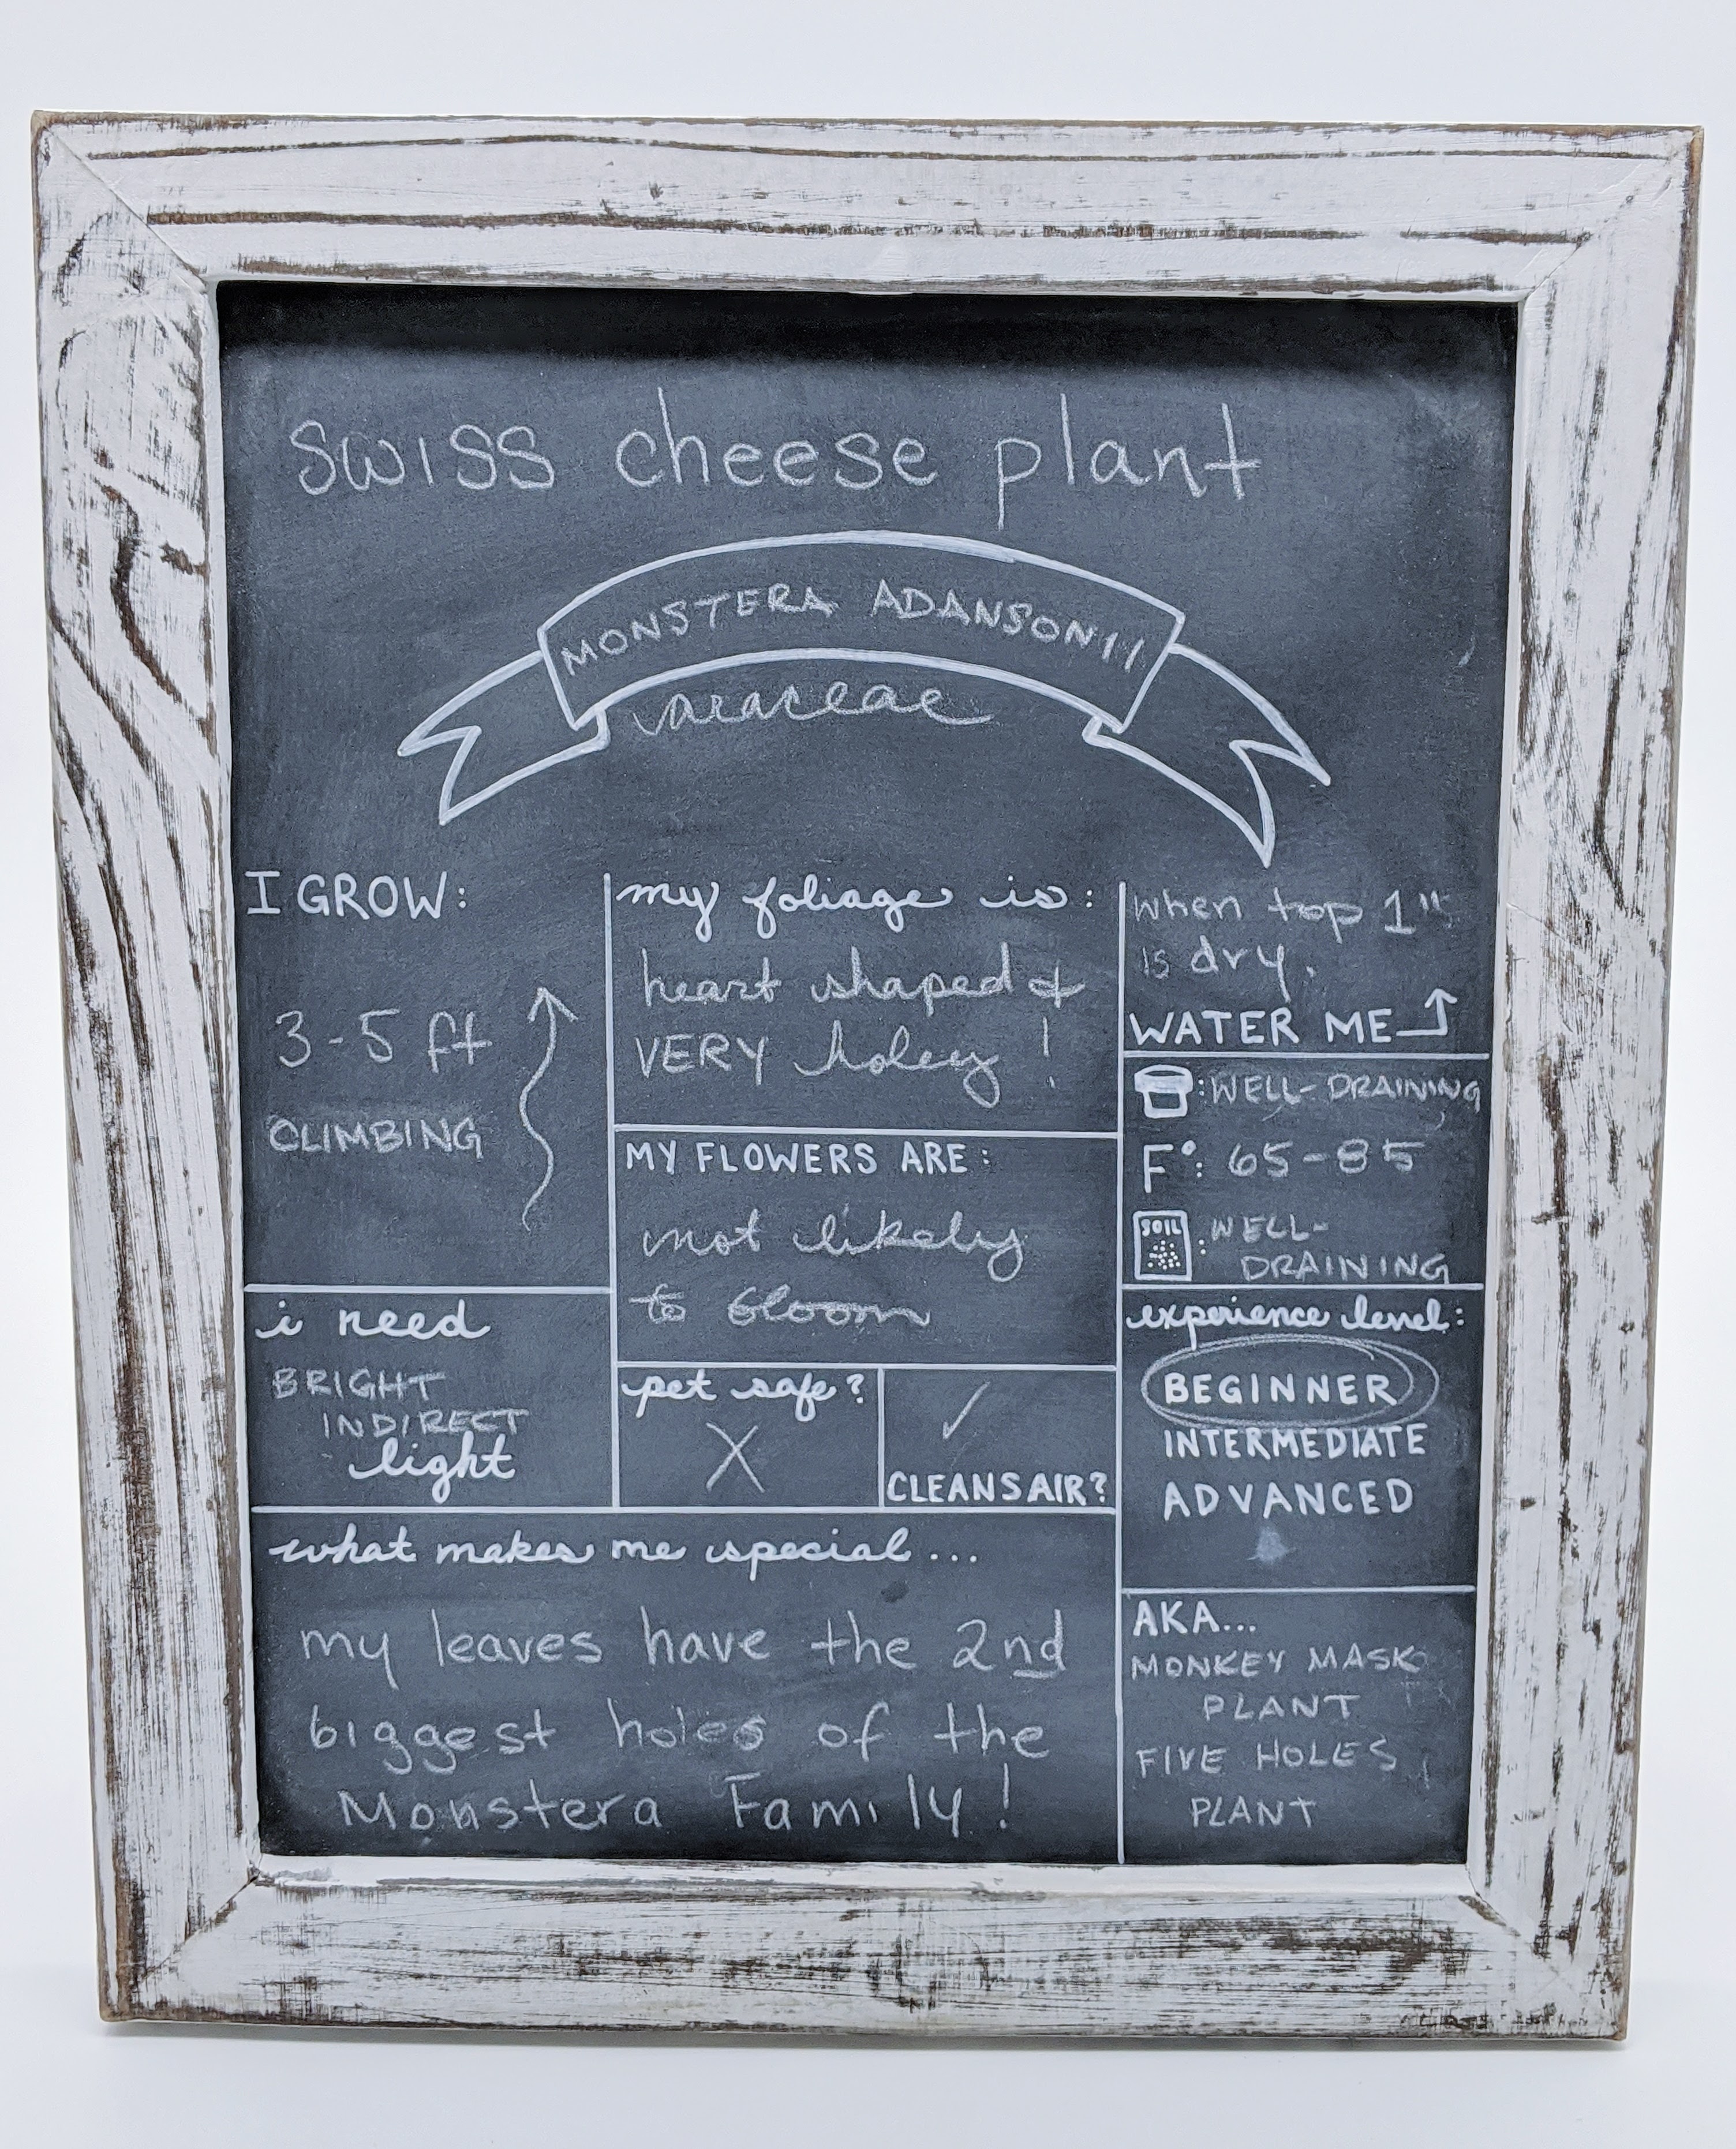 swiss cheese plant
MONSTERA ADANSONII
araceae
I GROW:
3-5 ft
CLIMBING
my foliage is:
heart shaped &
VERY holey!
when top 1"
is dry.
WATER ME
: WELL-DRAINING
F°: 65-85
SOIL : WELL-
DRAINING
MY FLOWERS ARE:
not likely
to bloom
i need
BRIGHT
INDIRECT
light
pet safe?
X
✓
CLEANS AIR?
experience level:
BEGINNER
INTERMEDIATE
ADVANCED
what makes me special...
my leaves have the 2nd
biggest holes of the
Monstera Family!
AKA...
MONKEY MASK
PLANT
FIVE HOLES
PLANT